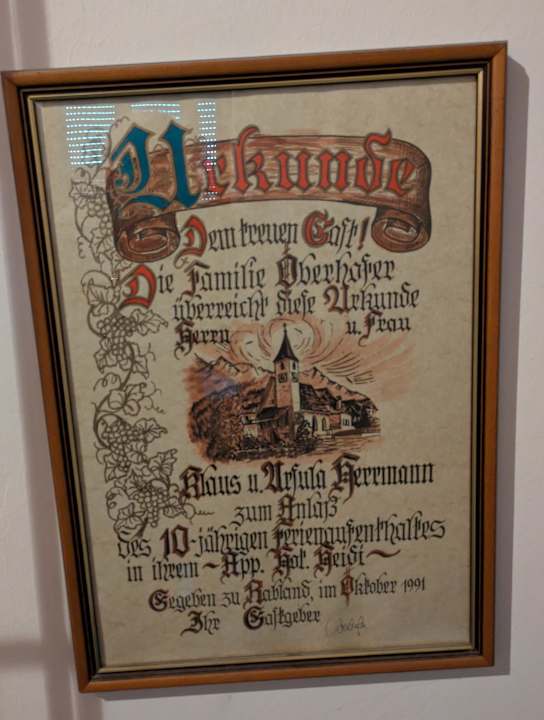 Urkunde
Dem treuen Gast!
Die Familie Oberhofer
überreicht diese Urkunde
Herrn u. Frau
Klaus u. Ursula Herrmann
zum Anlaß
des 10-jährigen Ferienaufenthaltes
in ihrem ~ App. Hot. Heidi ~
Gegeben zu Rabland, im Oktober 1991
Ihr Gastgeber